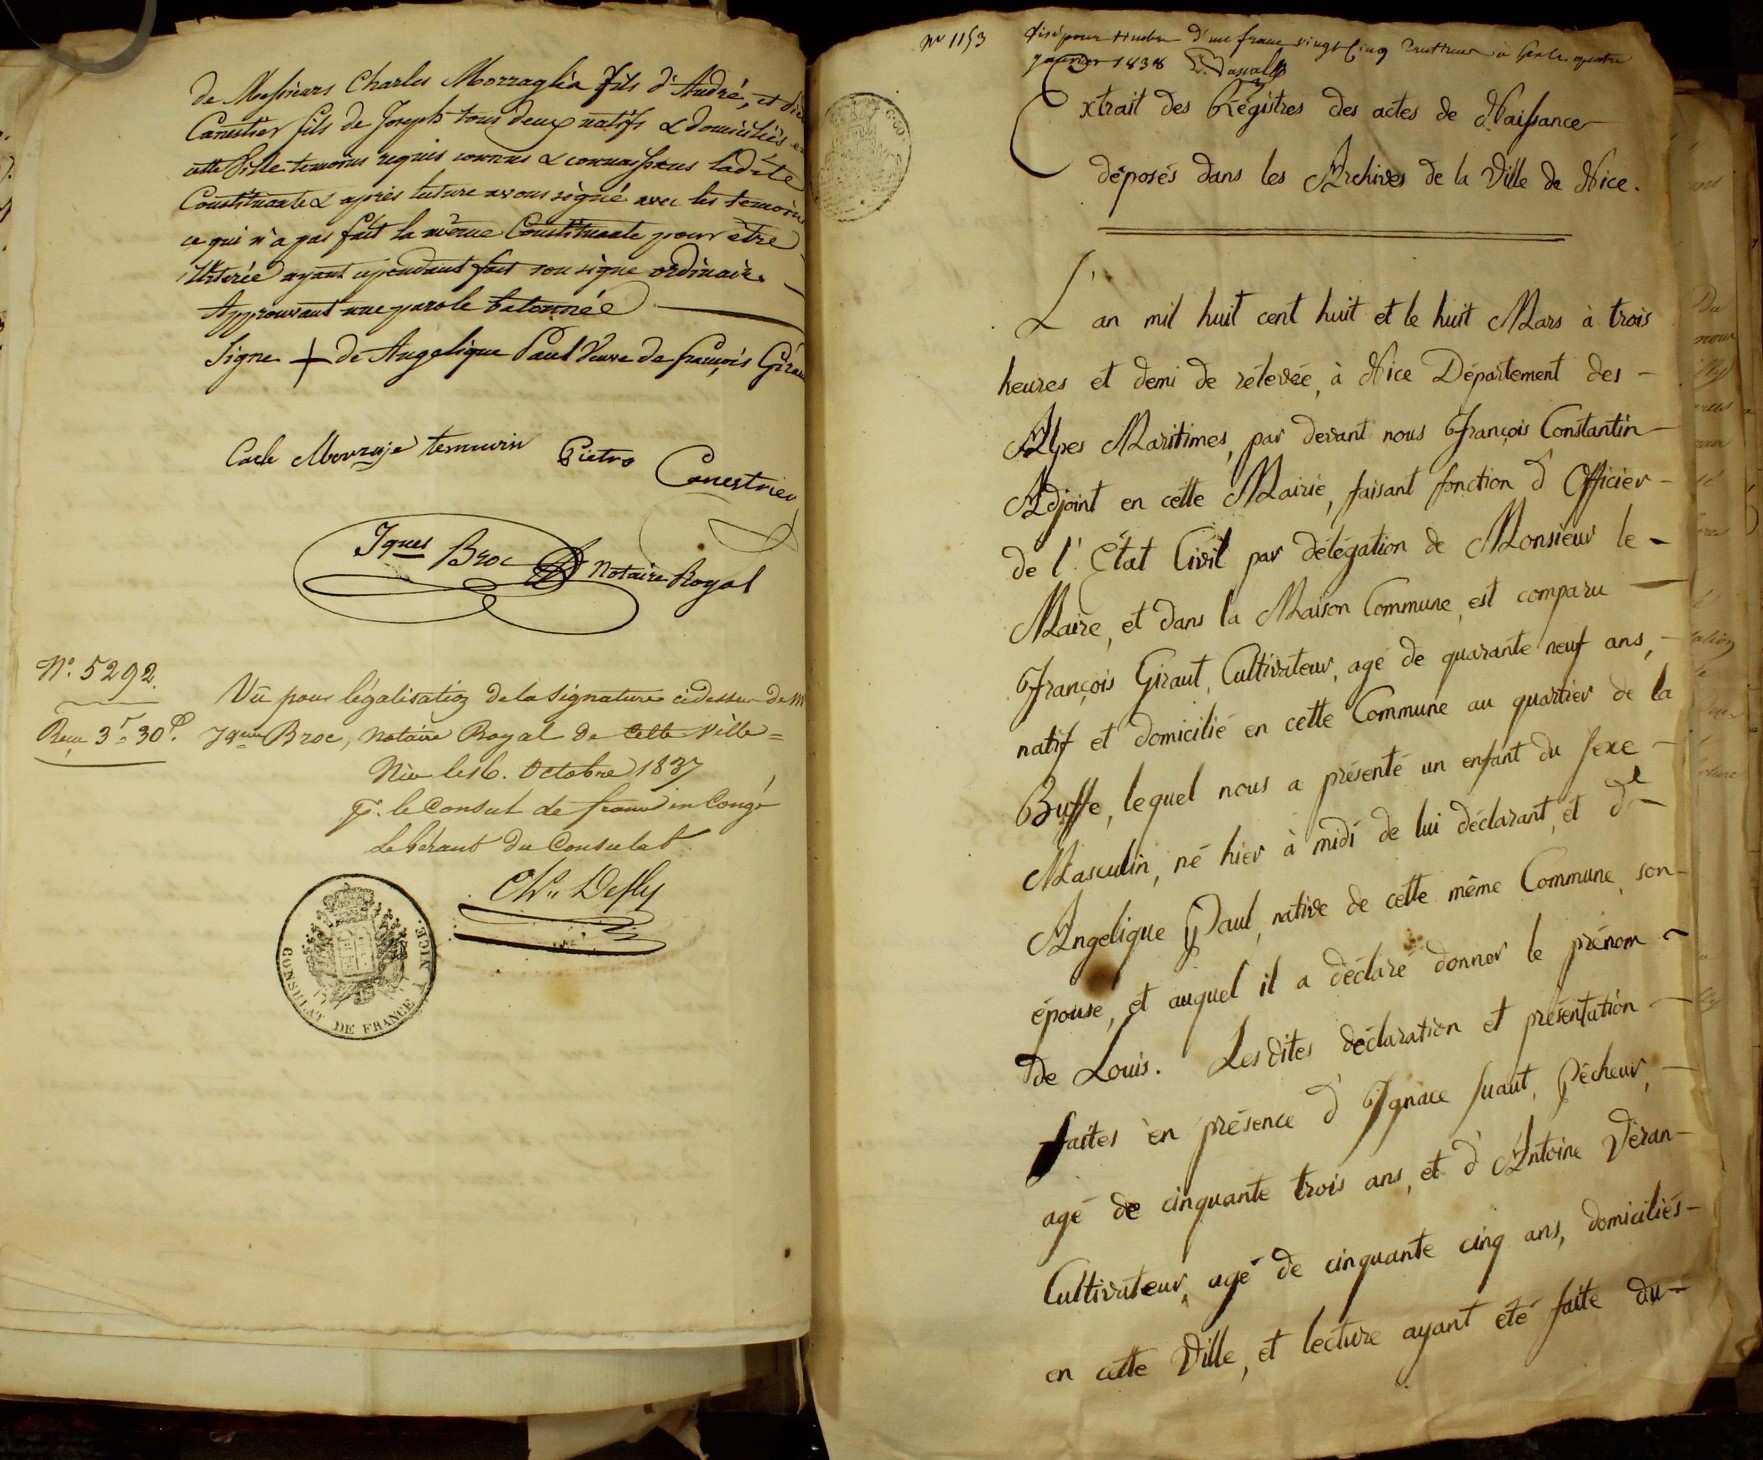 de Messieurs Charles Morraglia fils d'André, et
Canestrier fils de Joseph tous deux natifs & domiciliés
cette Ville temoins requis connus & connaissans ladite
Constituante & après lecture avons signé avec les temoins
ce qui n'a pas fait la même Constituante pour être
illeterée ayant cependant fait son signe ordinaire.
Approuvant une parole batonnée
Signe + de Angelique Paul Veuve de françois Girau
Carle Morraje temoin Pietro
Canestrier
Igues Broc Notaire Royal
N.º 5292.
Vu pour légalisation de la signature cidessus de M
Reçu 3f 30c.
Igues Broc, notaire Royal de cette ville =
Nice le 16. Octobre 1837
Pr. le Consul de france en Congé
Le Gérant du Consulat
Ch. Defly
CONSULAT DE FRANCE A NICE.
Nº 1153
Visé pour timbre d'un franc vingt Cinq Centimes à quatre
janvier 1838
Extrait des Régistres des actes de Naissance
déposés dans les Archives de la Ville de Nice.
L'an mil huit cent huit et le huit Mars à trois
heures et demi de rélevée, à Nice Département des –
Alpes Maritimes, par devant nous François Constantin –
Adjoint en cette Mairie, faisant fonction d'Officier –
de l'État Civil par délégation de Monsieur le –
Maire, et dans la Maison Commune, est comparu –
François Giraut, Cultivateur, agé de quarante neuf ans, –
natif et domicilié en cette Commune au quartier de la
Buffe, lequel nous a présenté un enfant du sexe –
Masculin, né hier à midi de lui déclarant, et de –
Angelique Paul, native de cette même Commune, son –
épouse, et auquel il a déclaré donner le prénom –
de Louis. Les dites déclaration et présentation –
faites en présence d'Ignace Suaut, Pêcheur, –
agé de cinquante trois ans, et d'Antoine Véran –
Cultivateur, agé de cinquante cinq ans, domiciliés –
en cette Ville, et lecture ayant été faite du –